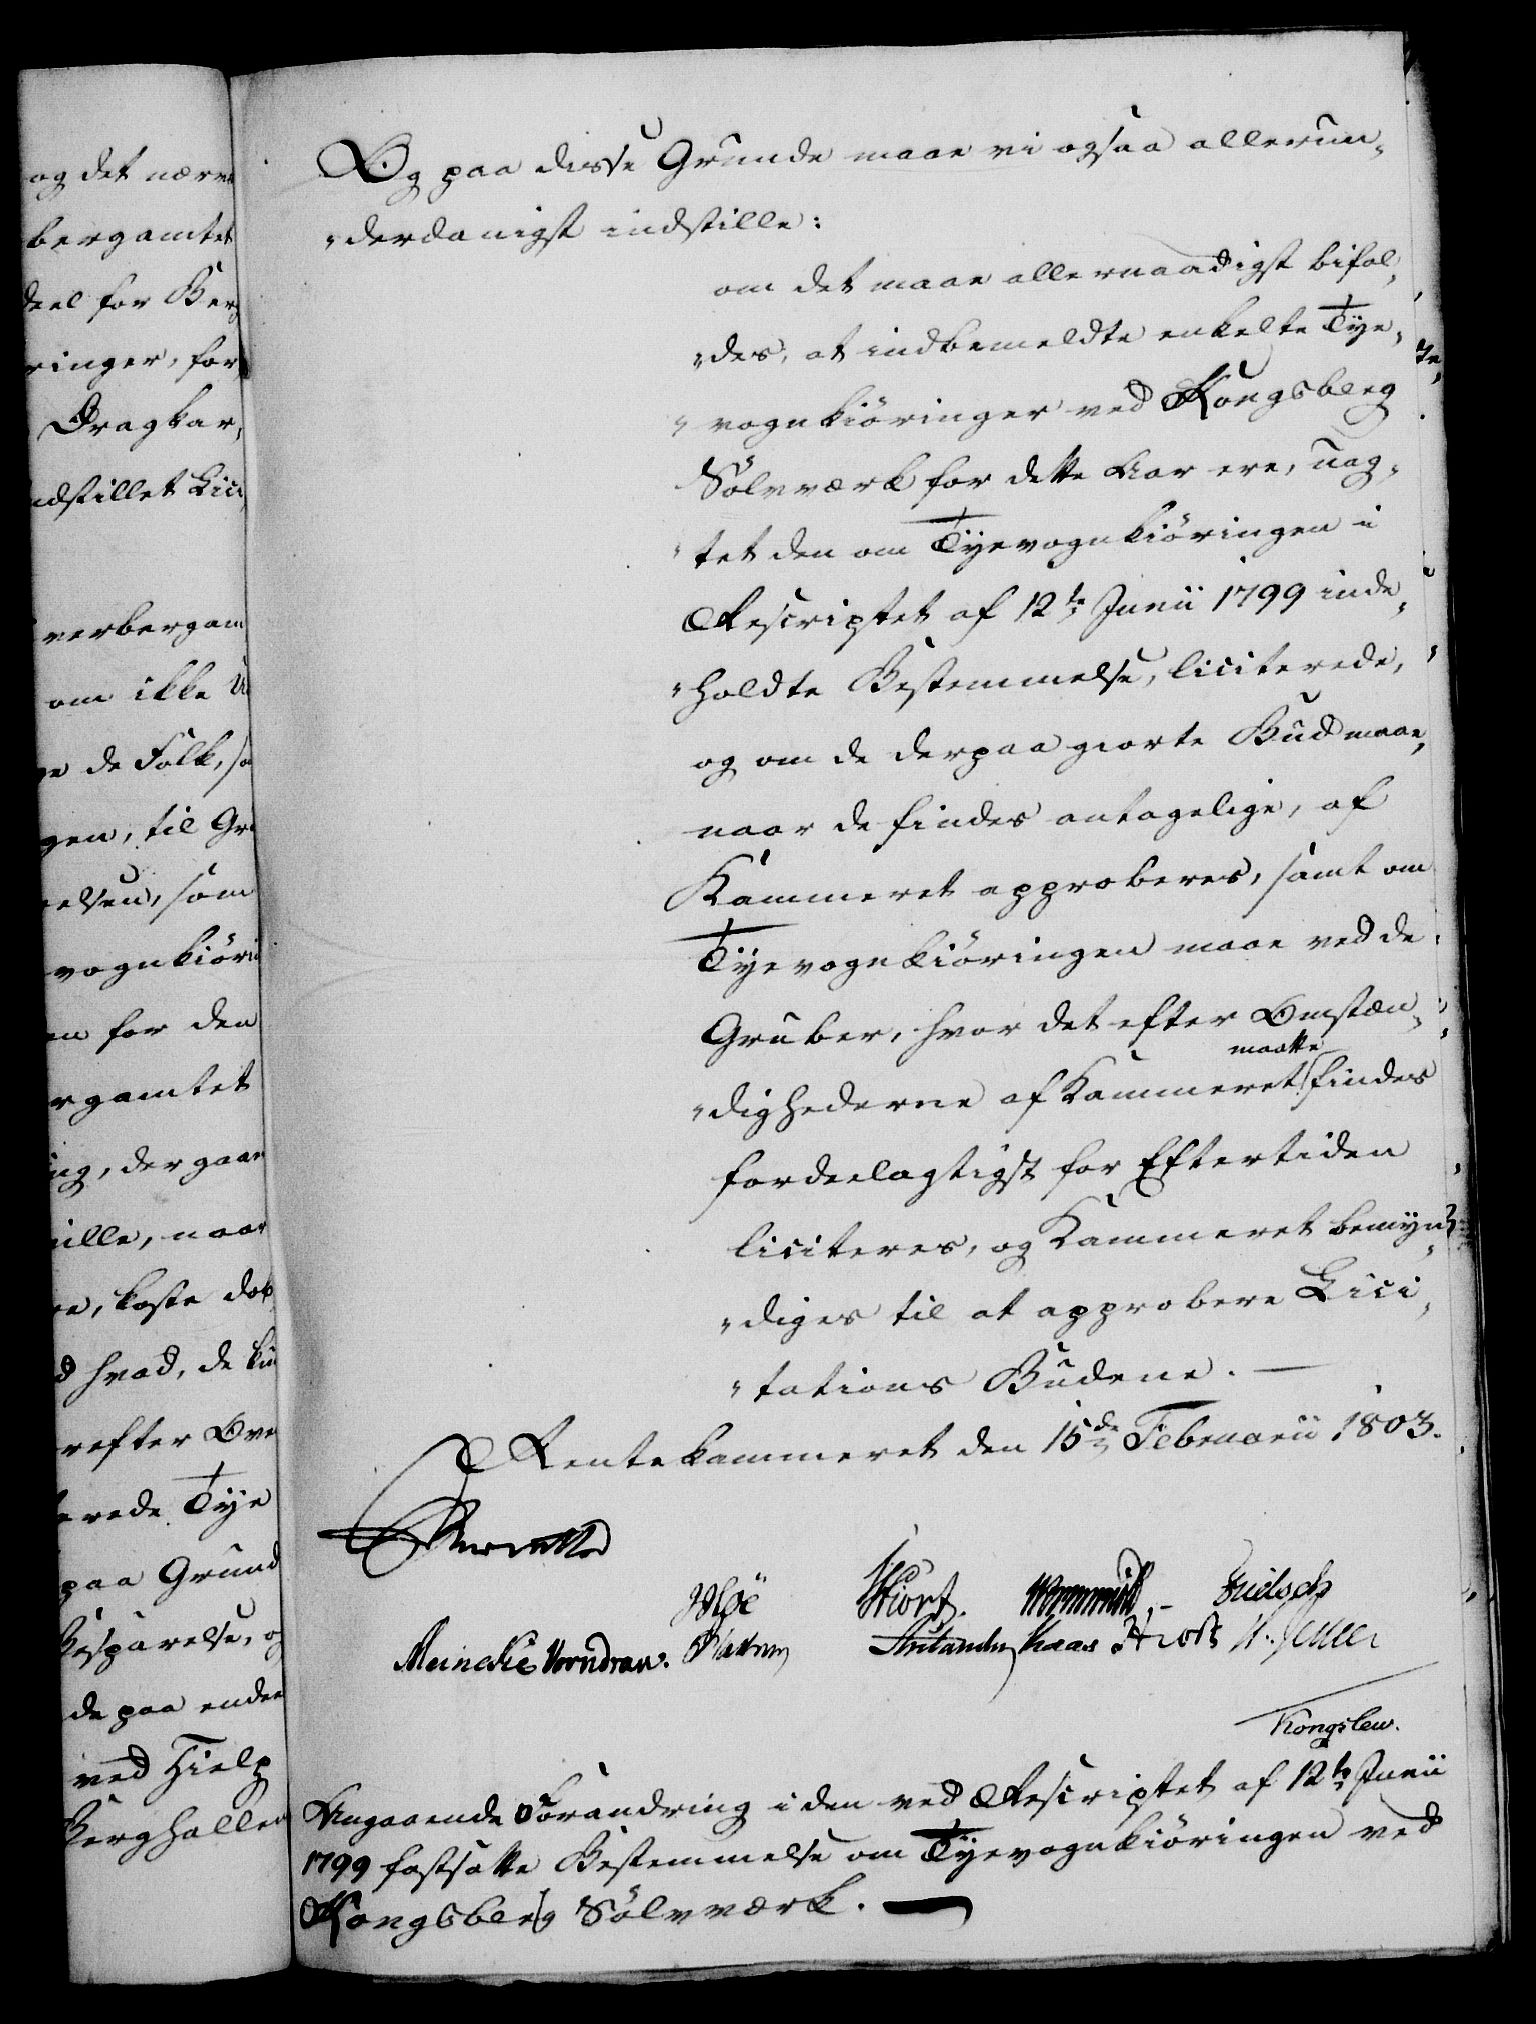 og det nærv
bergamtet
deel for Berg
ringer, for
Dragkar,
ndstillet Lici,
verbergam
om ikke U
de Folk, so
gen, til Gru
elsen, som
vognkiöri
en for den
rgamtet
ng, der gaar
ille, naar
re, koste dob
d hvad, de kun
refter Ove
erede Tye
paa Grund
Besparelse, og
de paa enden
ved Hielp
Berghallen
Og paa disse Grunde maae vi ogsaa allerun„
„derdanigst indstille:
om det maae allernaadigst bifal„
„des, at indbemeldte enkelte Tye„
„vognkiöringer ved Kongsberg
Sölvværk for dette Aar ere, uag„
„tet den om Tyevognkiöringen i
Rescriptet af 12te Junii 1799 inde„
„holdte Bestemmelse, liciterede,
og om de derpaa giorte Bud maae,
naar de findes antagelige, af
Kammeret approberes, samt om
Tyevognkiöringen maae ved de
Gruber, hvor det efter Omstæn„
maatte
„dighederne af Kammeret findes
fordeelagtigst for Eftertiden
liciteres, og Kammeret bemyn„
„diges til at approbere Lici„
„tations Budene. —
Rentekammeret den 15de Februarii 1803.
Reventlow
Wloë Hiort. Wormskiold, Fridsch
Meincke Vorndran. Knas Kroft
Kongslew.
Angaaende Forandring i den ved Rescriptet af 12te Junii
1799 fastsatte Bestemmelse om Tyevognkiöringen ved
Kongsberg Sölvværk. —